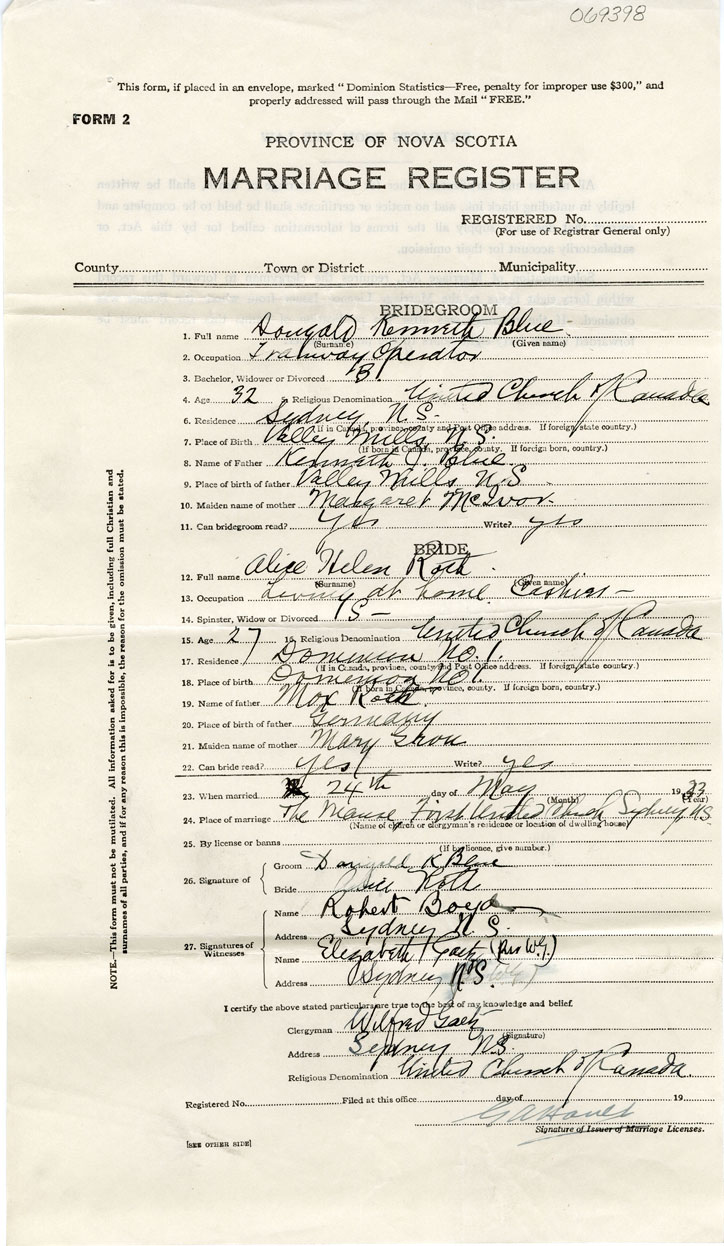 069398
This form, if placed in an envelope, marked "Dominion Statistics—Free, penalty for improper use $300," and
properly addressed will pass through the Mail "FREE."
FORM 2
PROVINCE OF NOVA SCOTIA
MARRIAGE REGISTER
REGISTERED No.
(For use of Registrar General only)
County Town or District Municipality
BRIDEGROOM
1. Full name Dougald Kenneth Blue
(Surname) (Given name)
2. Occupation Tramway Operator
3. Bachelor, Widower or Divorced B.
4. Age 32 5. Religious Denomination United Church of Canada
6. Residence Sydney, N.S.
(If in Canada, province, county and Post Office address. If foreign, state country.)
7. Place of Birth Valley Mills, N.S.
(If born in Canada, province, county. If foreign born, country.)
8. Name of Father Kenneth J. Blue
9. Place of birth of father Valley Mills N.S
10. Maiden name of mother Margaret McIvor
11. Can bridegroom read? Yes Write? yes
BRIDE
12. Full name Alice Helen Roth
(Surname) (Given name)
13. Occupation Living at home Cashier -
14. Spinster, Widow or Divorced S -
15. Age 27 16. Religious Denomination United Church of Canada
17. Residence Dominion No. 1.
(If in Canada, province, county and Post Office address. If foreign, state country.)
18. Place of birth Dominion No 1.
(If born in Canada, province, county. If foreign born, country.)
19. Name of father Max Roth
20. Place of birth of father Germany
21. Maiden name of mother Mary
22. Can bride read? yes Write? yes
23. When married 24th day of May 1933
(Month) (Year)
24. Place of marriage The Manse First United Church Sydney N.S.
(Name of church or clergyman's residence or location of dwelling house)
25. By license or banns
(If by licence, give number.)
26. Signature of
Groom Dougald K Blue
Bride Alice Roth
27. Signatures of Witnesses
Name Robert Boyd
Address Sydney N.S.
Name Elizabeth Gaetz (per W.G.)
Address Sydney N.S. (W.G.)
I certify the above stated particulars are true to the best of my knowledge and belief.
Clergyman Wilfred Gaetz
(Signature)
Address Sydney N.S.
Religious Denomination United Church of Canada
Registered No. Filed at this office day of 19
Signature of Issuer of Marriage Licenses.
[SEE OTHER SIDE]
NOTE.—This form must not be mutilated. All information asked for is to be given, including full Christian and
surnames of all parties, and if for any reason this is impossible, the reason for the omission must be stated.